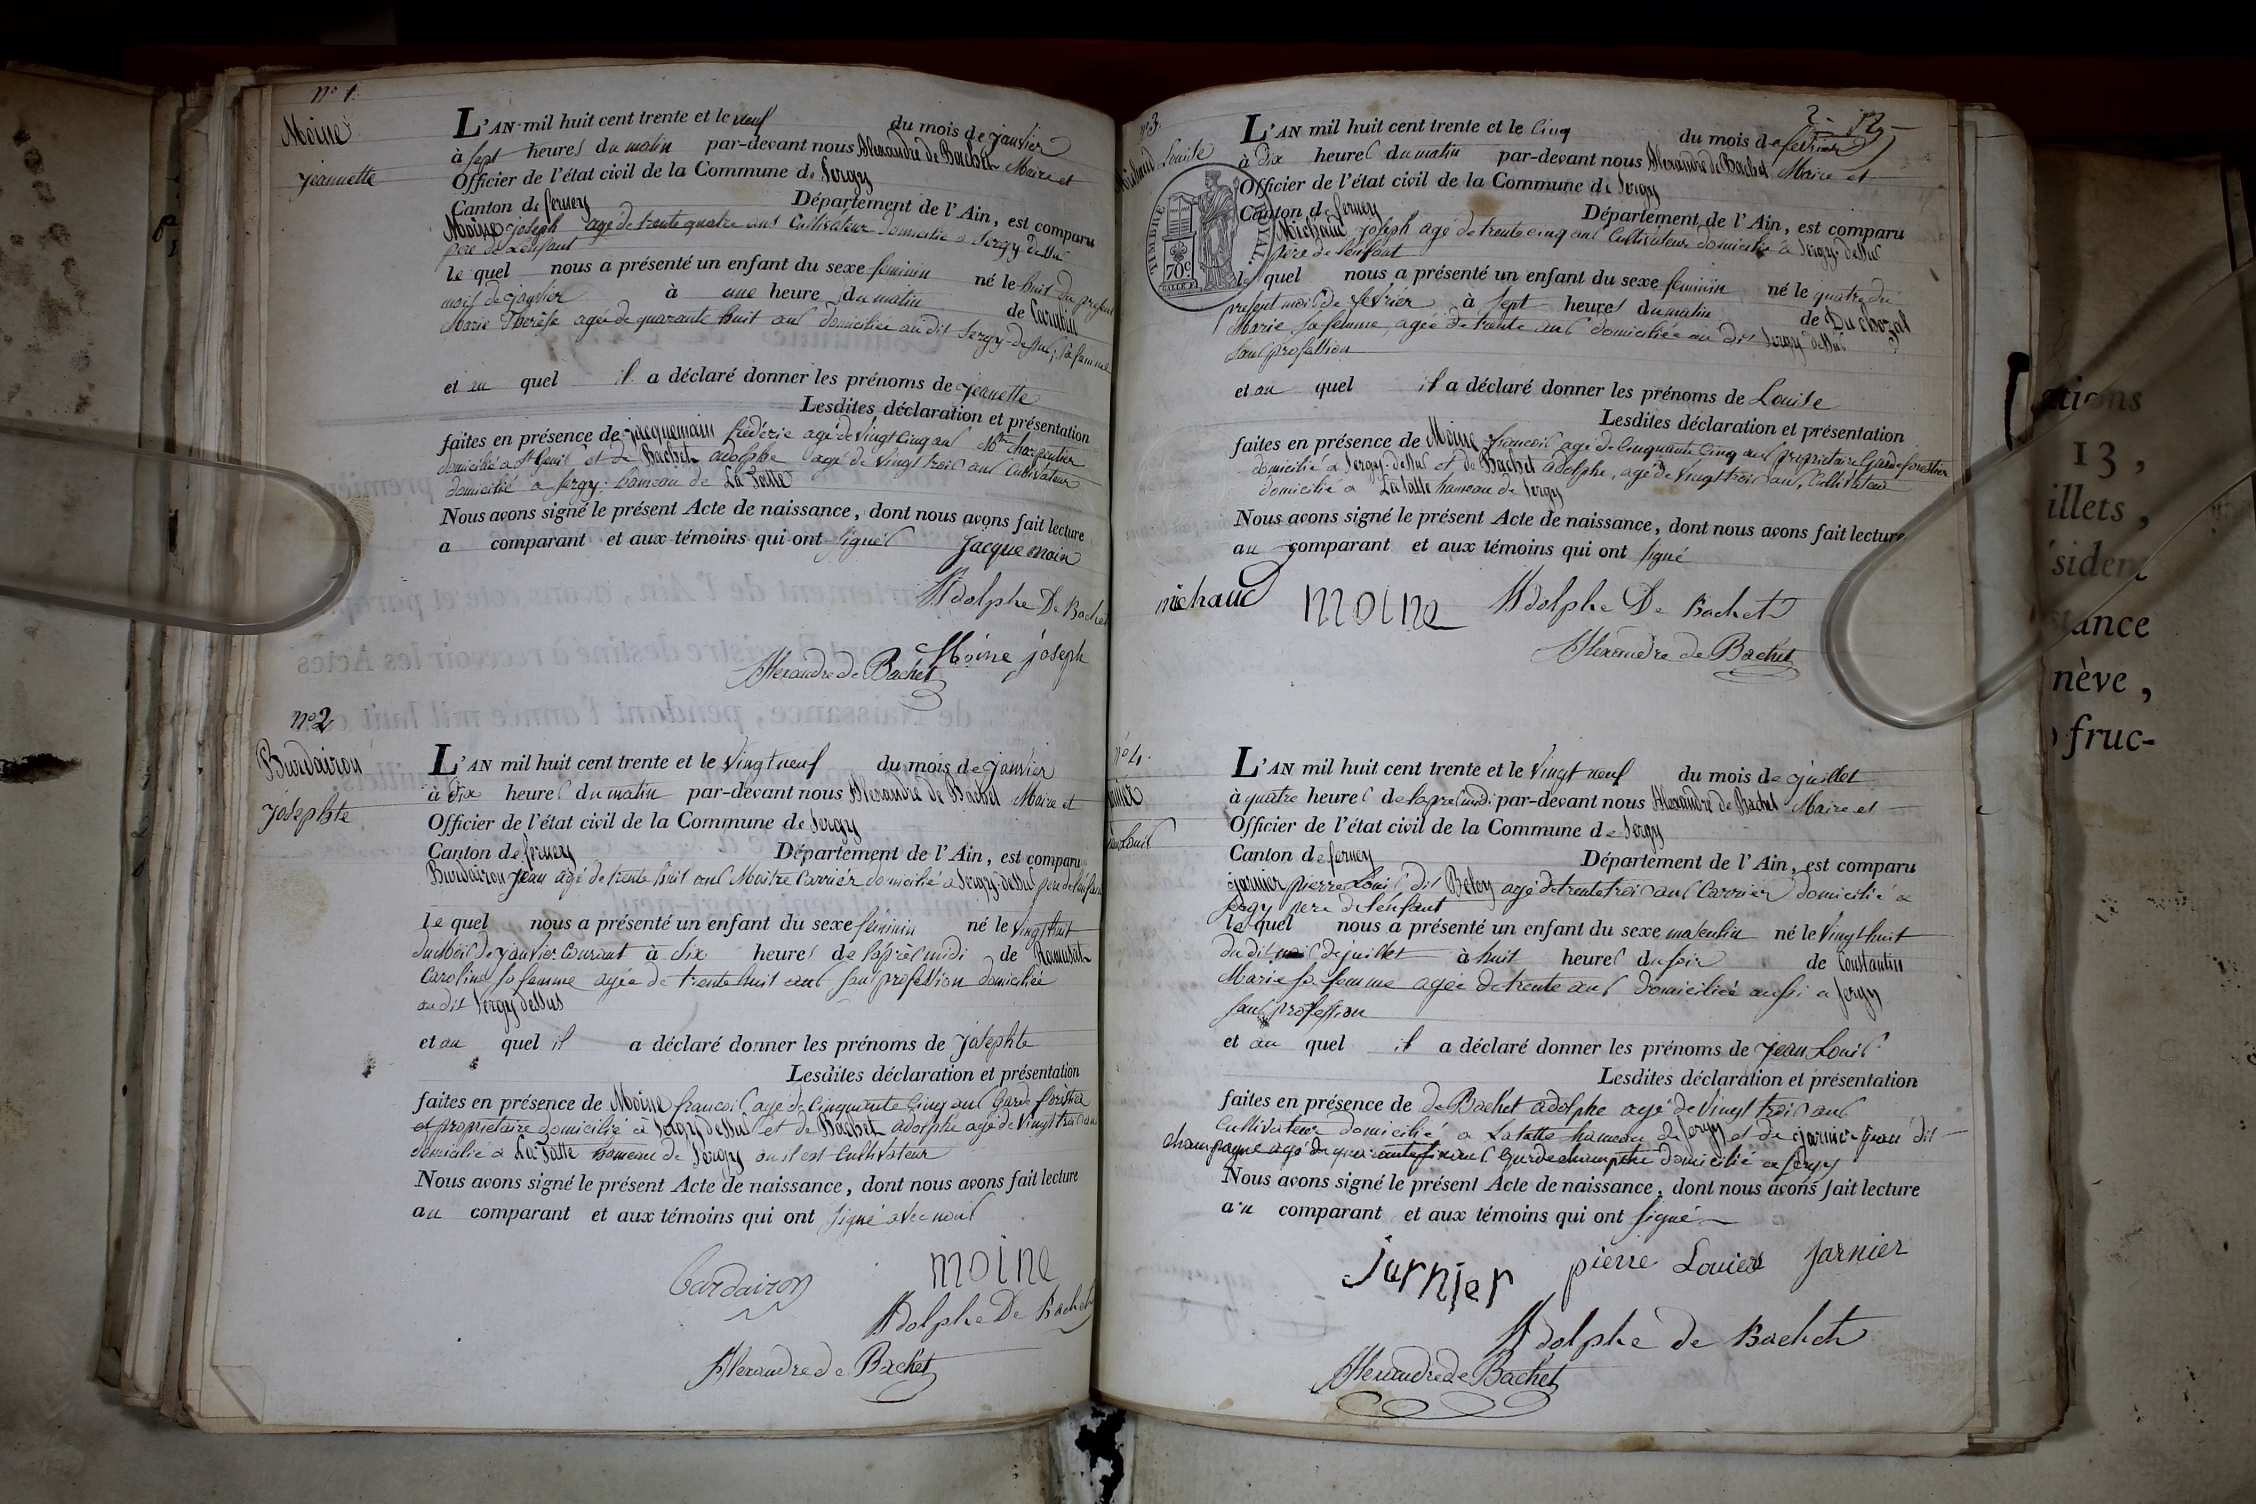 n° 1.
Moine
jeannette
L'AN mil huit cent trente et le neuf du mois de janvier
à sept heures du matin par-devant nous Alexandre de Bachet Maire et
Officier de l'état civil de la Commune de Sergy
Canton de ferney Département de l'Ain, est comparu
Moine joseph agé de trente quatre ans Cultivateur domicilié a Sergy dessus
pere de lenfant
le quel nous a présenté un enfant du sexe feminin né le huit du present
mois de janvier à une heure du matin de
Marie Therèse agée de quarante huit ans domiciliée au dit Sergy-dessus, sa femme
et au quel il a déclaré donner les prénoms de jeannette
Lesdites déclaration et présentation
faites en présence de jacquemain frédéric agé de vingt cinq ans Me Charpentier
domicilié a St Genis et de Bachet adolphe agé de vingt trois ans Cultivateur
domicilié a Sergy hameau de La Tatte
Nous avons signé le présent Acte de naissance, dont nous avons fait lecture
a comparant et aux témoins qui ont signés
Jacquemain
Adolphe De Bachet
Moine joseph
Alexandre de Bachet
n° 2
Burdairon
josephte
L'AN mil huit cent trente et le vingt neuf du mois de janvier
à Dix heures du matin par-devant nous Alexandre de Bachet Maire et
Officier de l'état civil de la Commune de Sergy
Canton de ferney Département de l'Ain, est comparu
Burdairon jean agé de trente huit ans Maitre Carrier domicilié a Sergy-dessus pere de lenfant
le quel nous a présenté un enfant du sexe feminin né le vingt huit
du mois de janvier courant à dix heures de laprès midi de Ramusat
Caroline sa femme agée de trente huit ans sans profession domiciliée
au dit Sergy dessus
et au quel il a déclaré donner les prénoms de josephte
Lesdites déclaration et présentation
faites en présence de Moine francois agé de Cinquante Cinq ans Garde forestier
et propriétaire domicilié a Sergy dessus et de Bachet adolphe agé de vingt trois ans
domicilié a La Tatte hameau de Sergy ou il est Cultivateur
Nous avons signé le présent Acte de naissance, dont nous avons fait lecture
au comparant et aux témoins qui ont signé avec nous
Bardairon
moine
Adolphe De Bachet
Alexandre de Bachet
n° 3
Michaud Louise
TIMBRE ROYAL
70 c
L'AN mil huit cent trente et le cinq du mois de février
à Dix heures du matin par-devant nous Alexandre de Bachet Maire et
Officier de l'état civil de la Commune de Sergy
Canton de ferney Département de l'Ain, est comparu
Michaud joseph agé de trente cinq ans Cultivateur domicilié a Sergy-dessus
père de lenfant
le quel nous a présenté un enfant du sexe feminin né le quatre du
present mois de février à sept heures du matin de Duchozal
Marie sa femme, agée de trente ans domiciliée au dit Sergy dessus
sans profession
et au quel il a déclaré donner les prénoms de Louise
Lesdites déclaration et présentation
faites en présence de Moine francois agé de Cinquante Cinq ans proprietaire Garde forestier
domicilié a Sergy-dessus et de Bachet adolphe, agé de vingt trois ans, Cultivateur
domicilié a La tatte hameau de Sergy
Nous avons signé le présent Acte de naissance, dont nous avons fait lecture
au comparant et aux témoins qui ont signé
michaud
moine
Adolphe De Bachet
Alexandre de Bachet
n° 4.
L'AN mil huit cent trente et le vingt neuf du mois de juillet
à quatre heures de lapres midi par-devant nous Alexandre de Bachet Maire et
Officier de l'état civil de la Commune de Sergy
Canton de ferney Département de l'Ain, est comparu
jarnier pierre Louis dit agé de trente trois ans Carrier domicilié a
Sergy pere de lenfant
le quel nous a présenté un enfant du sexe masculin né le vingt huit
du dit mois de juillet à huit heures du soir de Constantin
Marie sa femme agée de trente ans domiciliée aussi a Sergy
sans profession
et au quel il a déclaré donner les prénoms de jean Louis
Lesdites déclaration et présentation
faites en présence de de Bachet adolphe agé de vingt trois ans
Cultivateur domicilié a La tatte hameau de Sergy et de jarnier jean dit
champagne agé de garde champetre domicilié a Sergy
Nous avons signé le présent Acte de naissance, dont nous avons fait lecture
au comparant et aux témoins qui ont signé
jarnier
pierre Louis jarnier
Adolphe de Bachet
Alexandre de Bachet
13,
illets,
nève,
fruc-